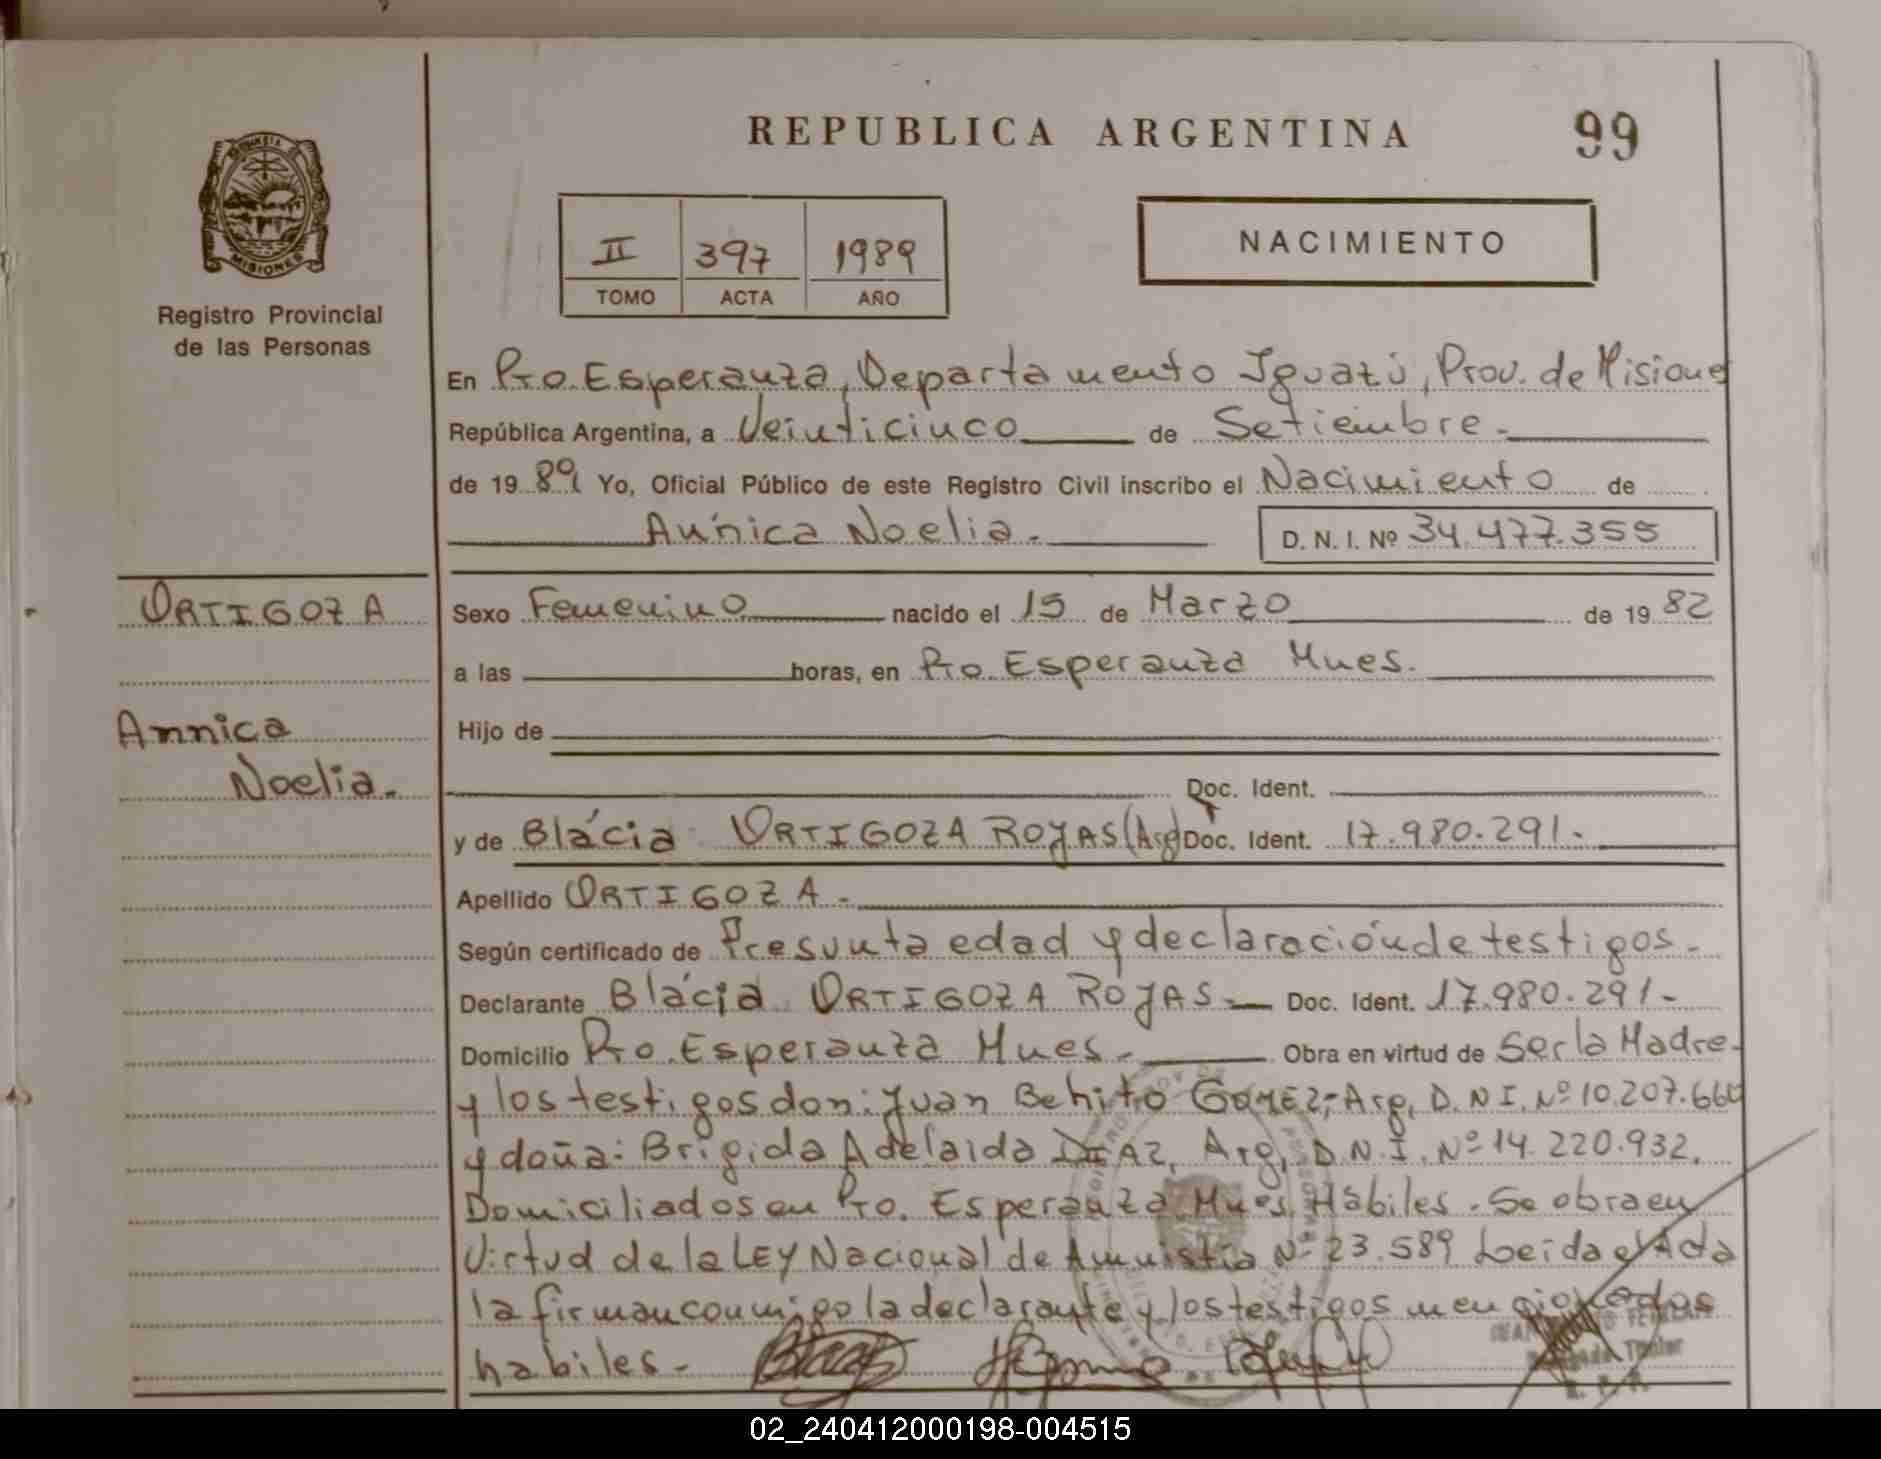 REPUBLICA ARGENTINA
99
MISIONES
Registro Provincial
de las Personas
II 397 1989
TOMO ACTA AÑO
NACIMIENTO
En Pto. Esperanza, Departamento Iguazú, Prov. de Misiones
República Argentina, a Veinticinco de Setiembre.
de 1989 Yo, Oficial Público de este Registro Civil inscribo el Nacimiento de
Annica Noelia. D. N. I. Nº 34.477.355
ORTIGOZA
Annica
Noelia.
Sexo Femenino nacido el 15 de Marzo de 1982
a las horas, en Pto. Esperanza Mnes.
Hijo de
Doc. Ident.
y de Blácia ORTIGOZA ROJAS (Arg) Doc. Ident. 17.980.291.
Apellido ORTIGOZA.
Según certificado de Presunta edad y declaración de testigos.
Declarante Blácia ORTIGOZA ROJAS. Doc. Ident. 17.980.291.
Domicilio Pto. Esperanza Mnes. Obra en virtud de Ser la Madre
y los testigos don: Juan Behito GOMEZ, Arg, D.N.I. Nº 10.207.660
y doña: Brigida Adelaida DIAZ, Arg, D.N.I. Nº 14.220.932.
Domiciliados en Pto. Esperanza Mnes. Hábiles. Se obra en
Virtud de la LEY Nacional de Amnistía Nº 23.589 Leída el Acta
la firman conmigo la declarante y los testigos mencionados
habiles.
Titular
R. P. P.
02_240412000198-004515